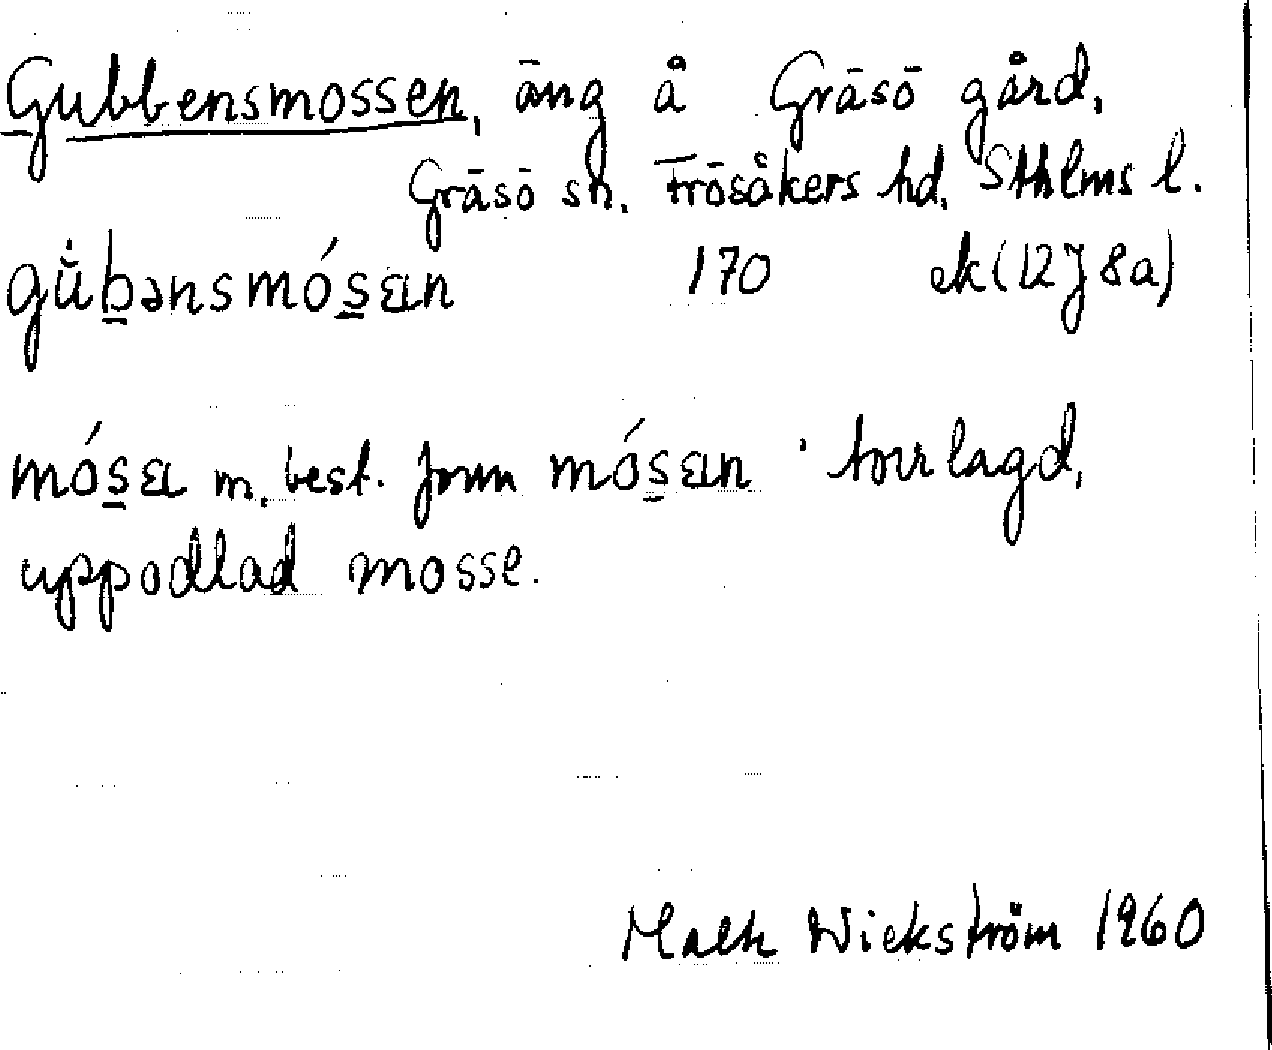 Gubbensmossen, äng å Gräsö gård,
Gräsö sn. Frösåkers hd. Sthlms l.
gǜb̲ənsmós̲an 170 ek (12J8a)
mós̲a m. best. form mós̲an 'torrlagd,
uppodlad mosse.
Wickström 1960